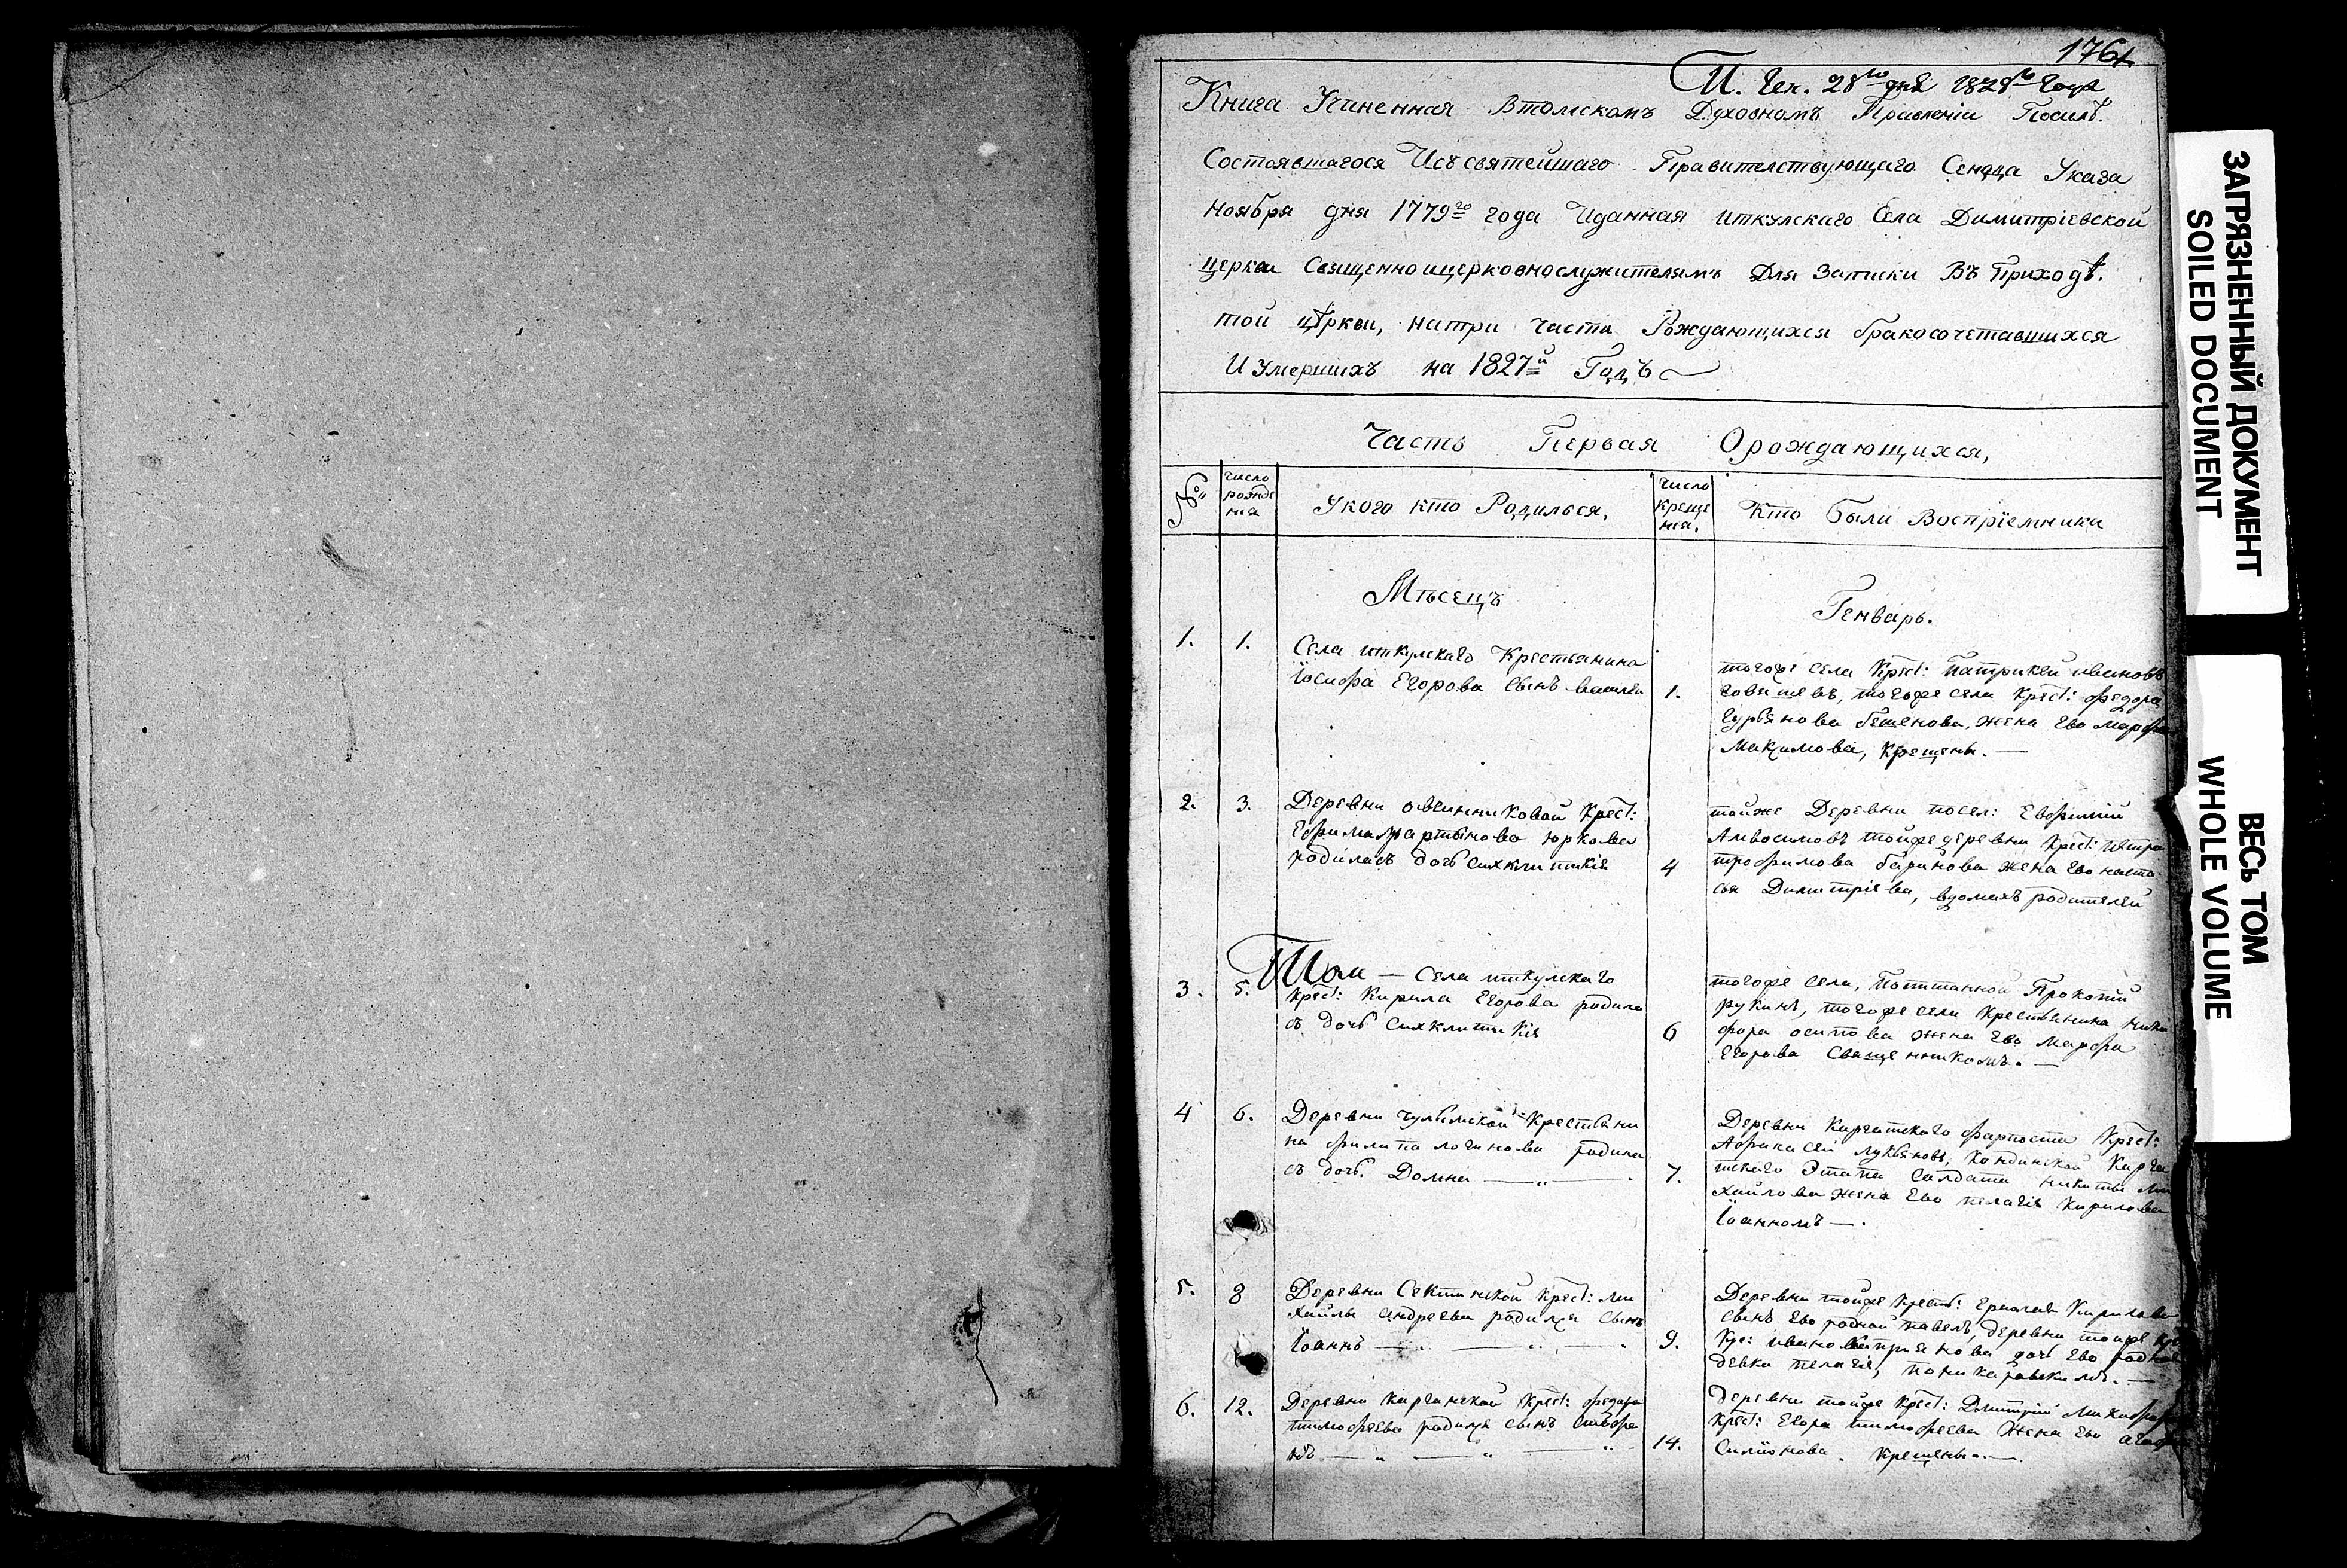 1761
П. Ген. 28го дня 1828го года
Книга Учиненная Втомскомъ Духовномъ Правленіи Посилѣ.
Состоявшагося Исъ святейшаго Правителствующаго Сенода Указа
Ноября дня 1779го года Иданная иткулскаго Села Димитріевской
церкви Священноицерковнослужителямъ Для Записки Въ Приходѣ.
той цѣркви, натри части Рождающихся бракосочетавшихся
И Умершихъ на 1827й Годъ
Часть Первая Орождающихся,
№ число рожде ния Укого кто Родилься, число креще ния. Кто были Воспріемники
Мѣсецъ Генварь.
1. 1. Села иткулскаго Крестьянина
Іосифа Егорова сынъ василей
1. тогоже села Крест: Патрикей ивановъ
тогоже села Крест: федора
Гурьянова жена Ево марфа
Макѕимова, крещены. —
2. 3. Деревни овчинниковой Крест:
Ефима мартынова юркова
родилась дочь синклитикія
4 тойже Деревни посел: Евфимій
Амвосимовъ тойже деревни Крест: петра
трофимова баринова жена Ево наста
сія Димитріева, вдомахъ родителей
3. 5. Том — Села иткулскаго
крест: Кирила Егорова родила
сь дочь синклитикія
6 тогоже села, Прокопій
рукинъ, тогоже села Крестьянина Ники
фора осипова жена Ево Марфа
Егорова Священникомъ. —
4 6. Деревни чулымской Крестьяни
на филипа логинова родила
сь дочь Домна — „ —
7. Деревни Каргатскаго фарпоста Крест:
Афанасей лукьяновъ, Карга
тскаго Этапа Салдата никиты ми
хайлова жена Ево пелагія Кирилова
Іоанномъ — .
5. 8 Деревни Секτинской крест: ми
хайлы андреева родился сынъ
Іоаннъ — „ —
9. Деревни тойже крест: Ермолая Кирилова
сынъ Ево родной павелъ, деревни тойже
Кре: ивана киприянова дочь Ево родная
девка пелагія,
6. 12. Деревни каргатской Крест: федора
тимофеева родился сынъ
14. деревни тойже Крест: Дмитрій
крест: Егора тимофеева жена Ево агафья
Симіонова. Крещены. —
ЗАГРЯЗНЕННЫЙ ДОКУМЕНТ
SOILED DOCUMENT
ВЕСЬ ТОМ
WHOLE VOLUME